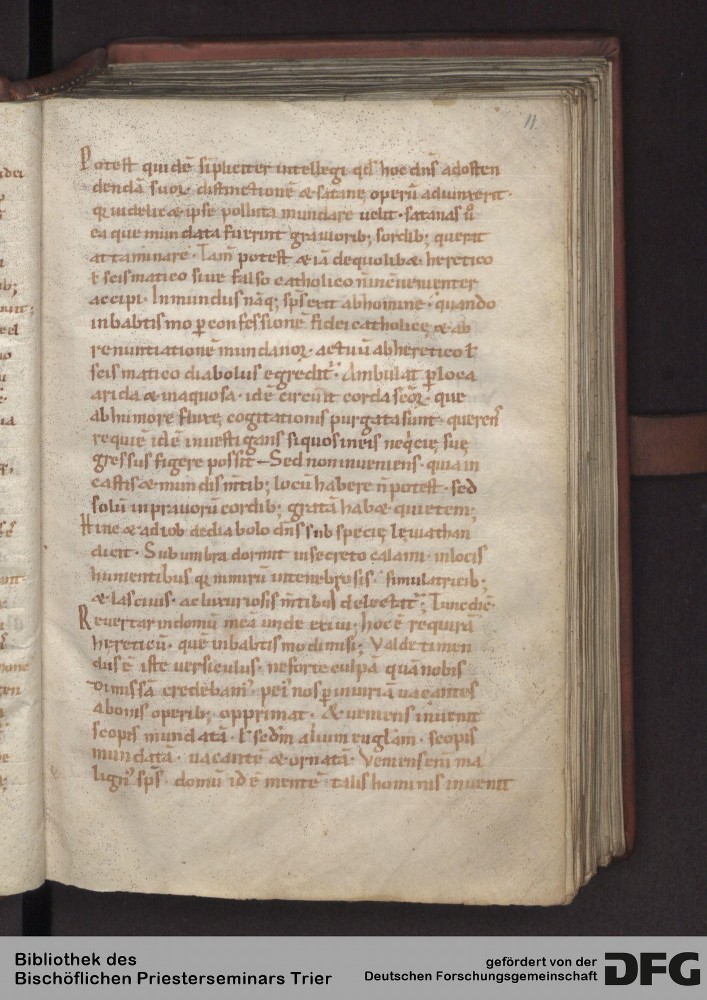 11
Potest quidē sīpliciter intellegi qđ hoc dn̄s ad osten
dendā suoꝝ distinctionē & satanę operū adiunxerit ·
qui delicet & ipse polluta mundare uelit · satanas ū
ea que mundata fuerint grauiorib; sordib; querat
attaminare · Tam̄ potest & iā de quolib& heretico
ł scismatico siue falso catholico n̄ inconuenienter
accipi · Inmundus nāq; sps̄ exiit ab homine · quando
in babtismo ꝑ confessionē fidei catholicę & ab
renuntiationē mundanoꝝ actuū ab heretico ł
scismatico diabolus egredit̄ · Ambulat ꝑ loca
arida & inaquosa · idē circuit corda seq̄ꝝ · que
ab humore fluxę cogitationis purgata sunt · querens
requiē idē inuestigans si quos in eis neq̄cię suę
gressus figere possit – Sed non inueniens · quia in
castis & mundis m̄tib; locū habere n̄ potest · sed
solū in prauorū cordib; gratā hab& quietem;
Hinc & ad iob de diabolo dn̄s sub specię leuiathan
dicit · Sub umbra dormit in secreto calami · in locis
humentibus qꝛ nimirū in tenebrosis · simulatricib;
& lasciuis · ac luxuriosis m̄tib; delectat̄; Tunc dic̄ ·
Reuertar in domū meā unde exiui; hoc ē requirā
hereticū · quē in babtismo dimisi; Valde timen
dus ē iste uersiculus · ne forte culpā quā nobis
dimissā credebam̄ · pei nos ꝑ incuriā uacantes
a bonis operib; opprimat · Et ueniens inuenit
scopis mundatā · ł sedm̄ alium euglām · scopis
mundatā · uacantē & ornatā · Veniens eni ma
lign̄ sps̄ · domū id ē mentē talis hominis inuenit
Bibliothek des
Bischöflichen Priesterseminars Trier
gefördert von der
Deutschen Forschungsgemeinschaft
DFG